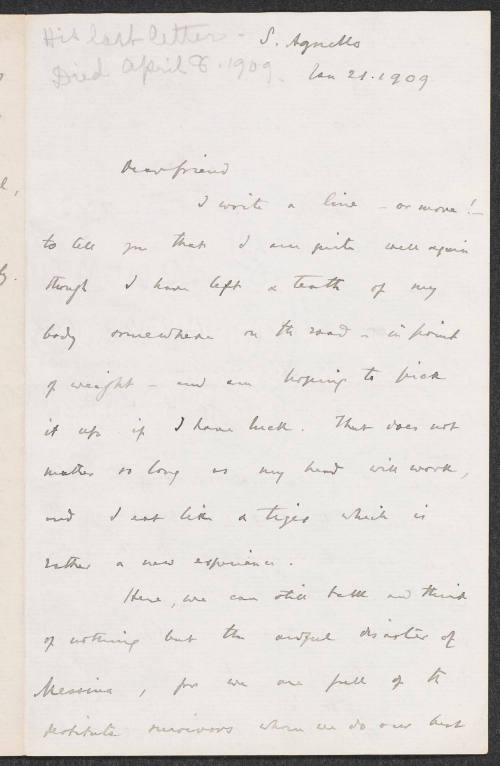 His last letter -
Died April 8. 1909.
S. Agnello
Jan 21. 1909
Dear friend
I write a line - or more! -
to tell you that I am quite well again
though I have left a tenth of my
body somewhere on the road - in point
of weight - and am hoping to pick
it up if I have luck. That does not
matter so long as my head will work,
and I eat like a tiger which is
rather a new experience.
Here, we can still talk and think
of nothing but the awful disaster of
Messina, for we are full of the
destitute survivors whom we do our best